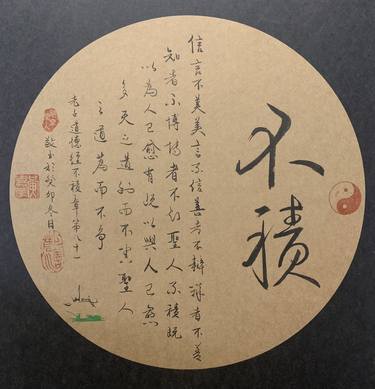 不積
信言不美美言不信善者不辯辯者不善
知者不博博者不知聖人不積既
以為人己愈有既以與人己愈
多天之道利而不害聖人
之道為而不爭
老子道德經不積章第八十一
敬書於癸卯冬日